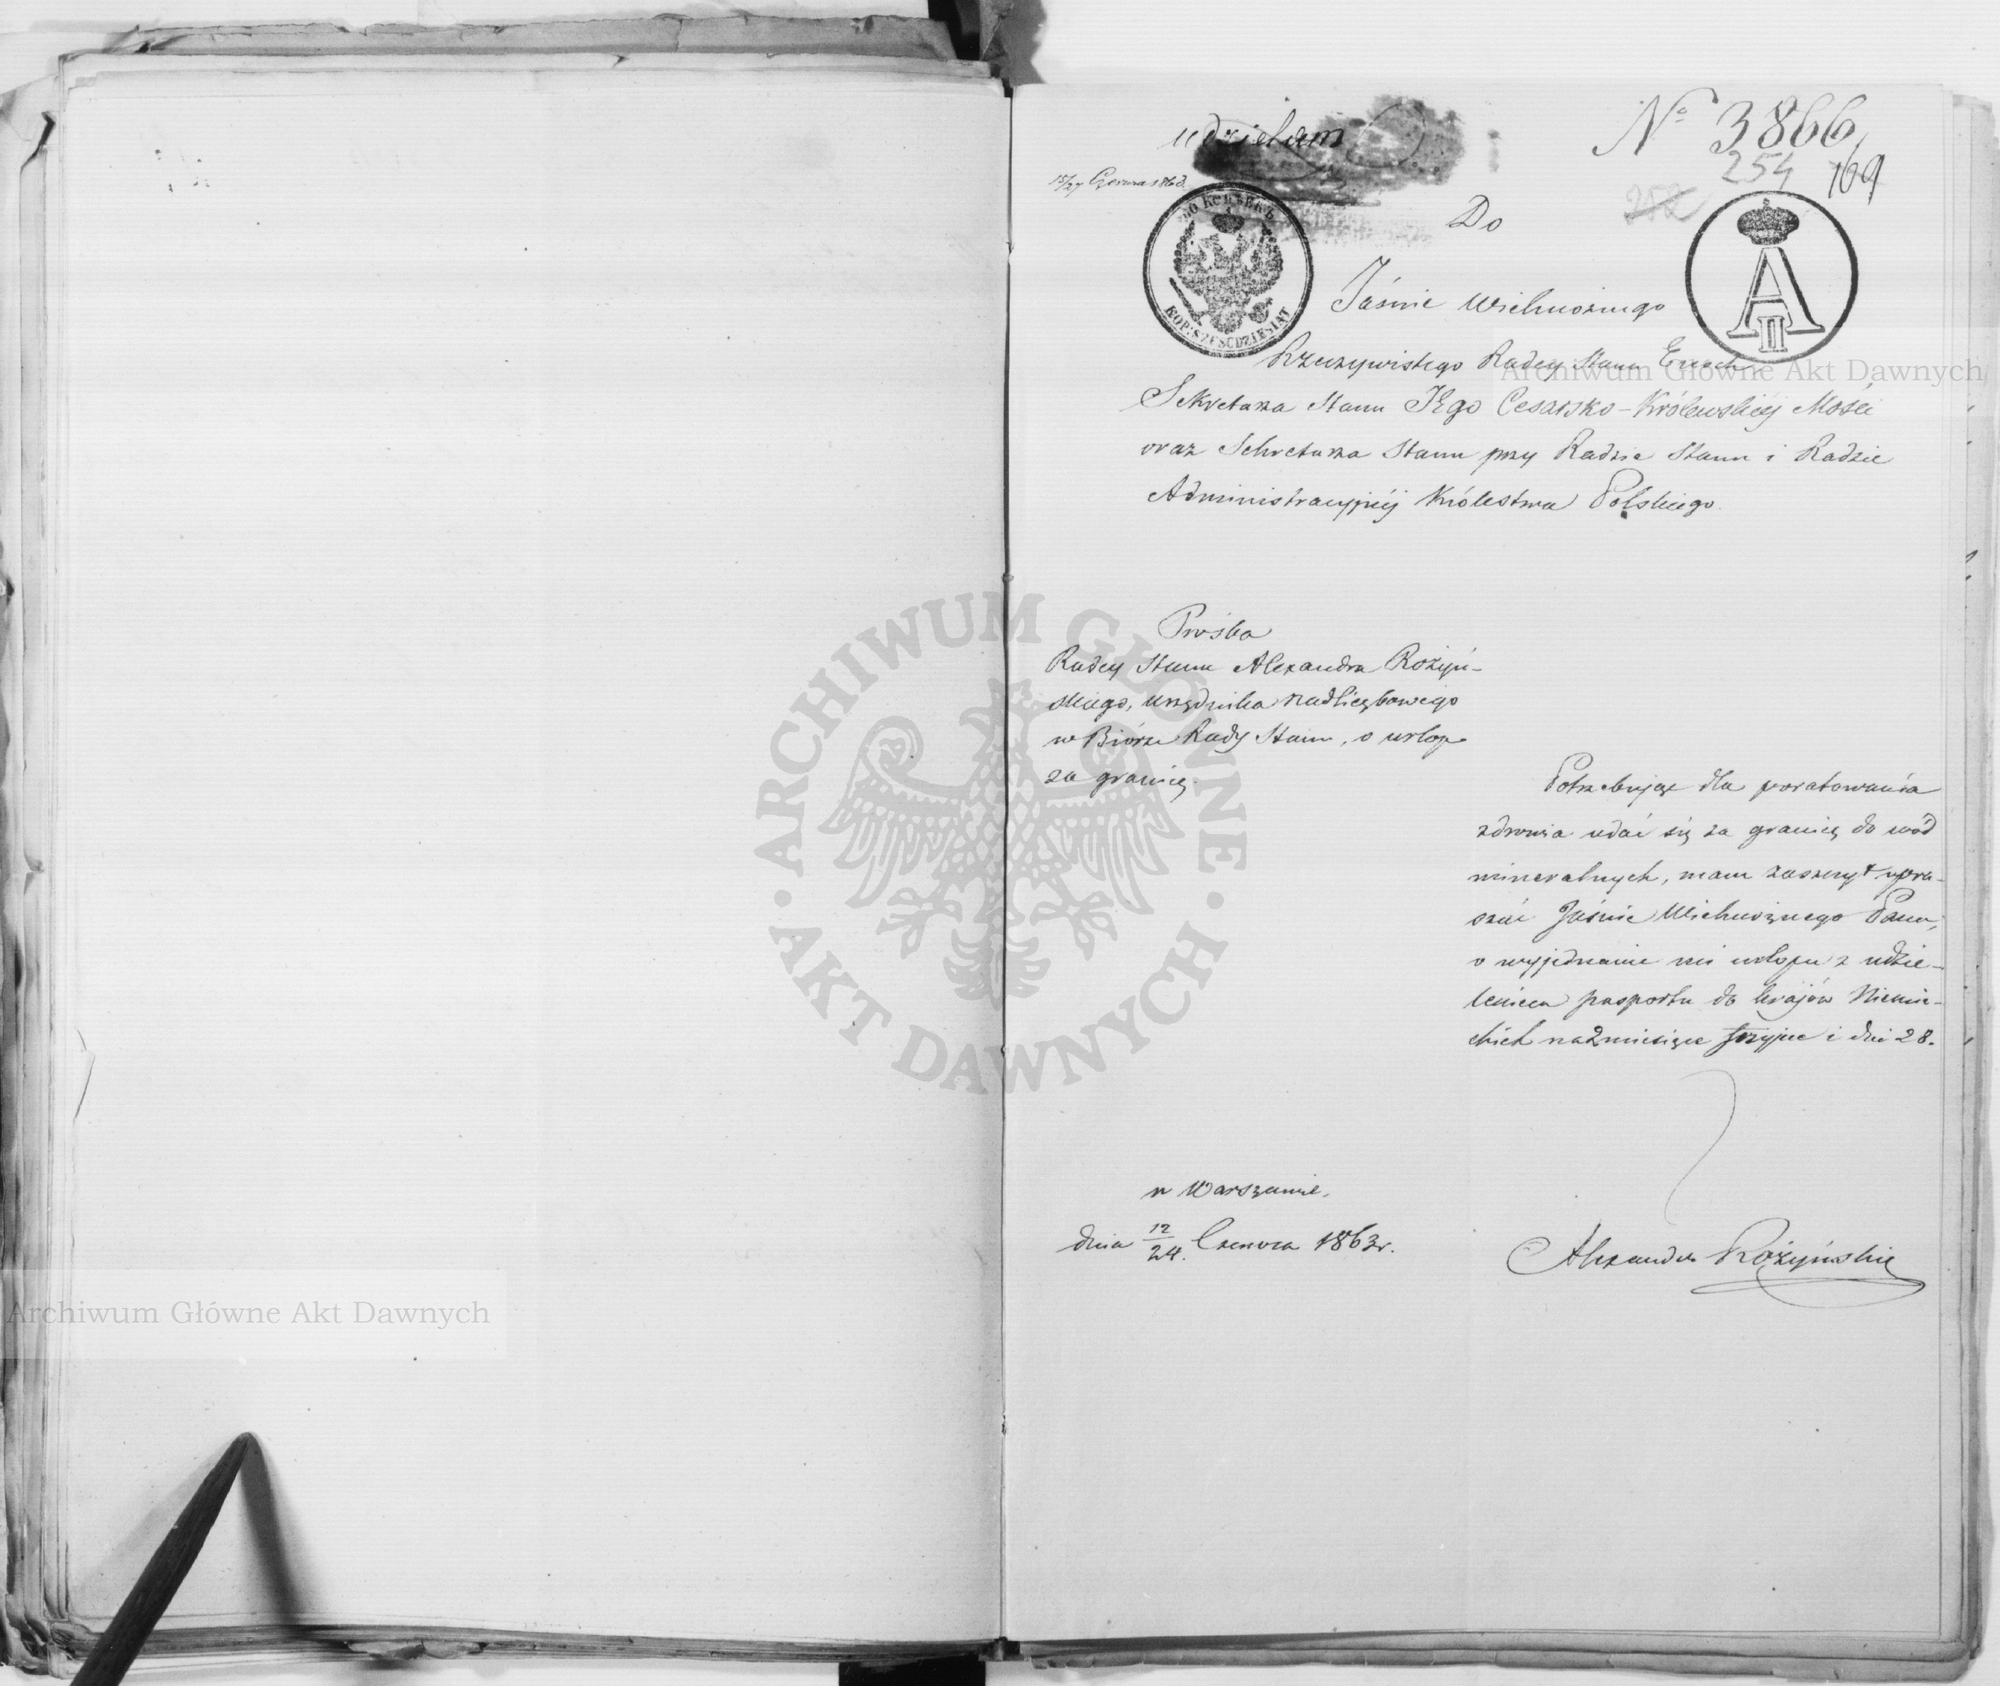 udzielam
15/27 Czerwca 1863.
Nº 3866
254 169
252
60 КОПѢЕКЪ
KOP: SZEŚĆDZIESIĄT
A II
Do
Jaśnie Wielmożnego
Rzeczywistego Radcy Stanu Enoch
Sekretarza Stanu Jego Cesarsko-Królewskiej Mości
oraz Sekretarza Stanu przy Radzie Stanu i Radzie
Administracyjnéj Królestwa Polskiego.
Prośba
Radcy Stanu Alexandra Rożyń-
skiego, urzędnika nadliczbowego
w Biórze Rady Stanu, o urlop
za granicę.
Potrzebując dla poratowania
zdrowia udać się za granicę do wód
mineralnych, mam zaszczyt upra-
szać Jaśnie Wielmożnego Pana,
o wyjednanie mi urlopu z udzie-
leniem pasportu do krajów Niemie-
ckich na 2 miesiące i dni 28.
w Warszawie.
dnia 12/24. Czerwca 1863 r.
Alexander Rożyński
Archiwum Główne Akt Dawnych
ARCHIWUM GŁÓWNE AKT DAWNYCH
Archiwum Główne Akt Dawnych